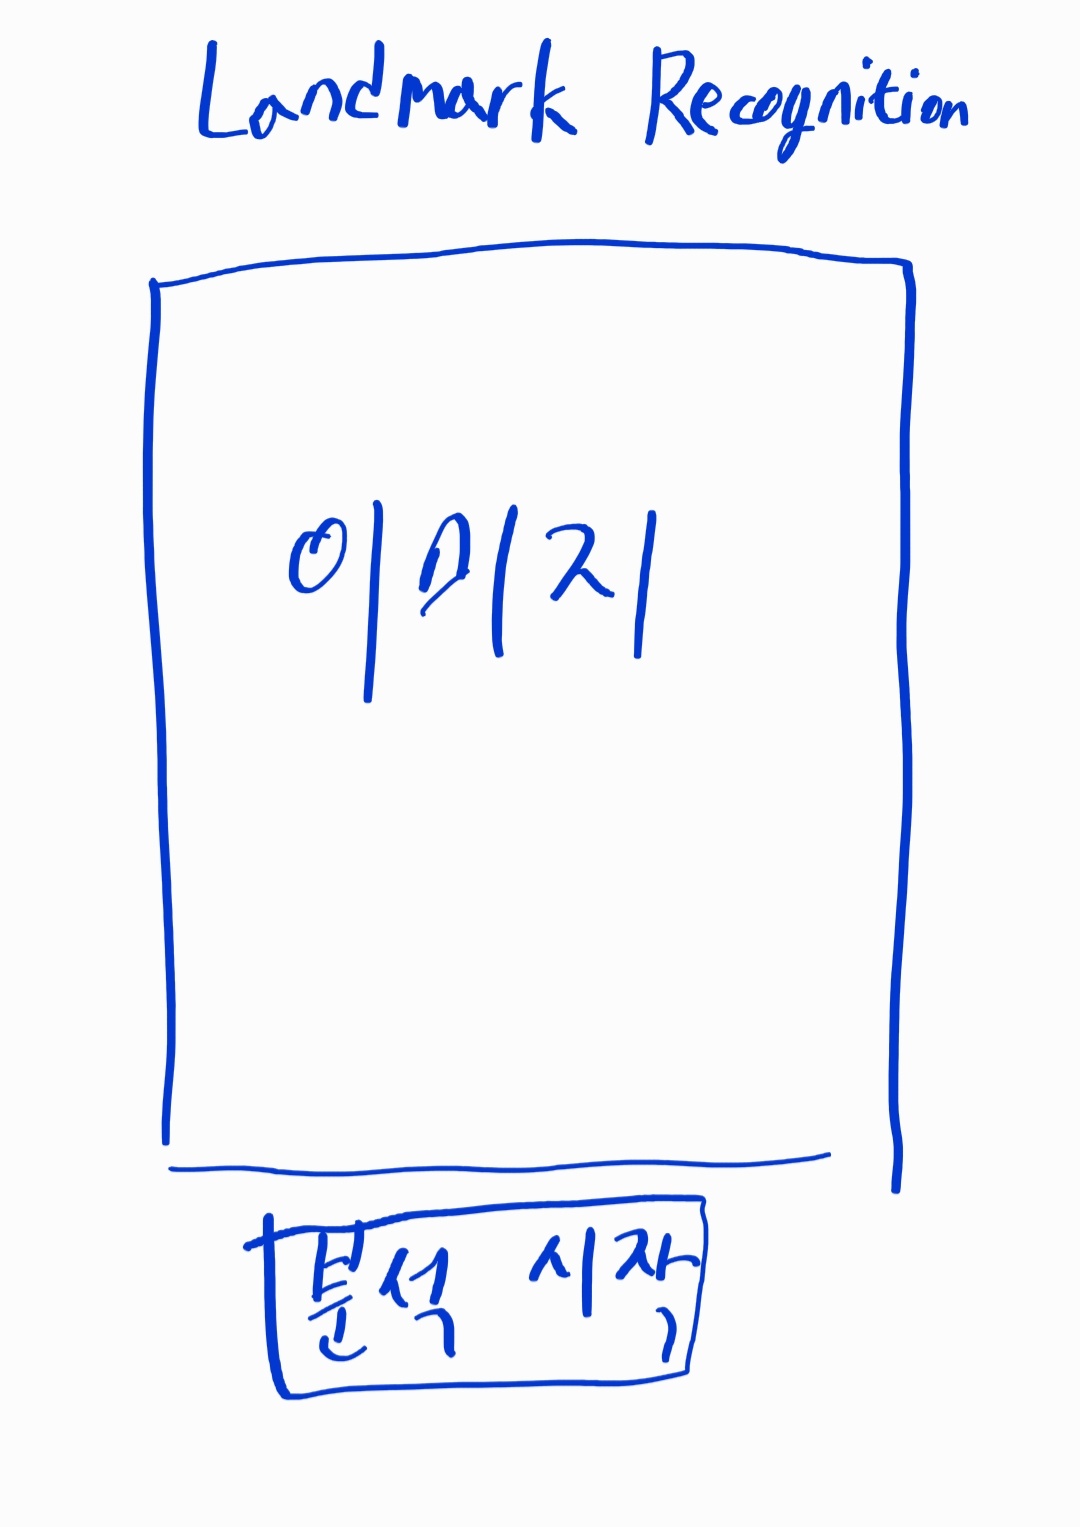 Landmark Recognition
이미지
분석 시작